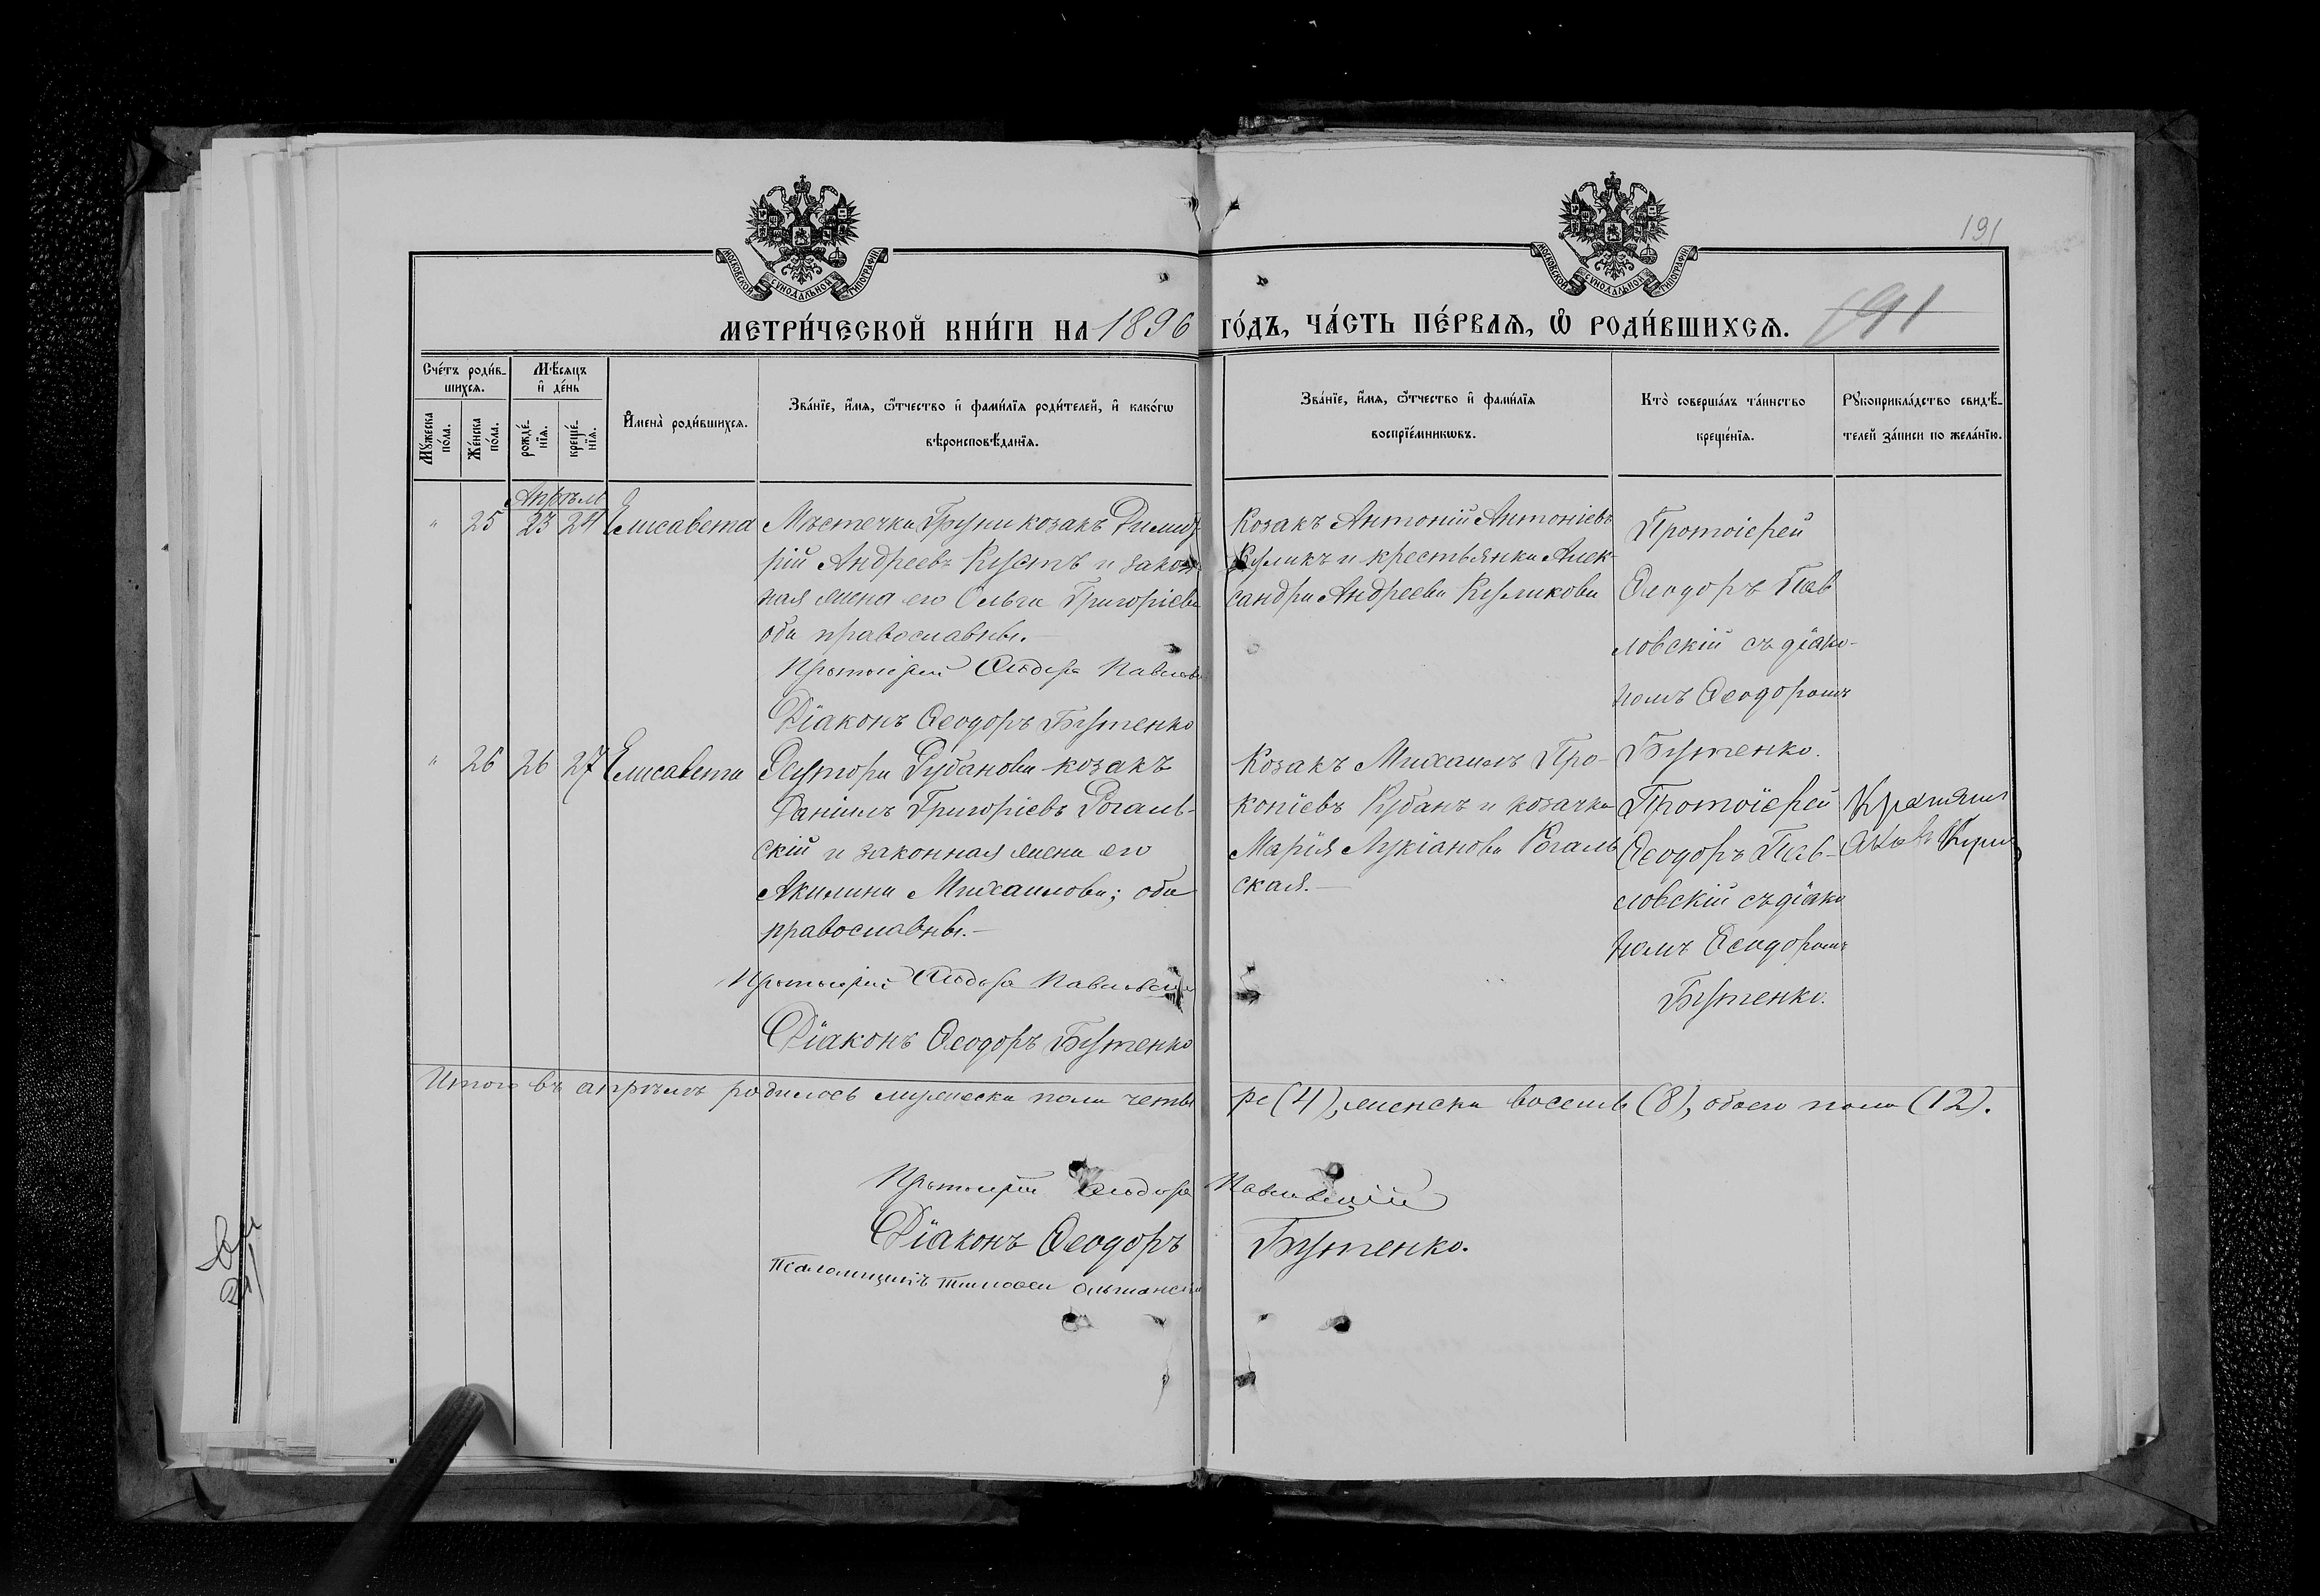 191
МОСКОВСКОЙ СУНОДАЛЬНОЙ ТИПОГРАФІИ
МОСКОВСКОЙ СУНОДАЛЬНОЙ ТИПОГРАФІИ
МЕТРИ́ЧЕСКОЙ КНИ́ГИ НА 1896 ГО́ДЪ, ЧА́СТЬ ПЕ́РВАѦ, Ѡ РОДИ́ВШИХСѦ. 191
Сче́тъ роди́в-
шихсѧ.
Мѣ́сѧцъ
и҆ де́нь
Мꙋ́жеска по́ла.
Же́нска по́ла.
рожде́-нїѧ.
креще́-нїѧ.
И҆мена̀ роди́вшихсѧ.
Зва́нїе, и҆́мѧ, ѻ҆́тчество и҆ фами́лїѧ роди́телей, и҆ како́гѡ
вѣроисповѣ́данїѧ.
Зва́нїе, и҆́мѧ, ѻ҆́тчество и҆ фами́лїѧ
воспрїе́мникѡвъ.
Кто̀ соверша́лъ та́инство
креще́нїѧ.
Рꙋкоприкла́дство свидѣ́-
телей за́писи по жела́нїю.
Апрѣль
" 25 23 24 Елисавета
Мѣстечка Груни козакъ Димит-
рій Андреевъ Кустъ и закон-
ная жена его Ольга Григоріева
оба православны.
Протоіерей Ѳеодоръ Павловскій
Діаконъ Ѳеодоръ Бутенко
Козакъ Антоній Антоніевъ
Куликъ и крестьянка Алек-
сандра Андреева Куликова
Протоіерей
Ѳеодоръ Пав
ловскій съ діако-
номъ Ѳеодоромъ
Бутенко.
" 26 26 27 Елисавета
Хутора Рубанова козакъ
Даніилъ Григоріевъ Рогаль-
скій и законная жена его
Акилина Михаилова; оба
православны.
Протоіерей Ѳеодоръ Павловскій
Діаконъ Ѳеодоръ Бутенко
Козакъ Михаилъ Про-
копіевъ Рубанъ и козачка
Марія Лукіанова Рогаль
ская.
Протоіерей
Ѳеодоръ Пав-
ловскій съ діако
номъ Ѳеодоромъ
Бутенко.
Итого въ апрѣлѣ родилось мужеска пола четы ре (4), женска восемь (8), обоего пола (12).
Протоіерей Ѳеодоръ Павловскій
Діаконъ Ѳеодоръ Бутенко.
Псаломщикъ Тимоѳей Ольшанскій